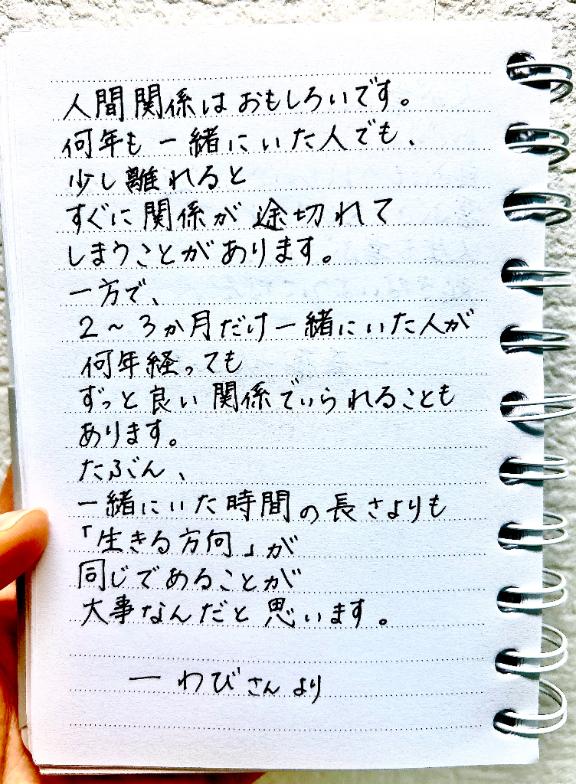 人間関係はおもしろいです。
何年も一緒にいた人でも、
少し離れると
すぐに関係が途切れて
しまうことがあります。
一方で、
2～3か月だけ一緒にいた人が
何年経っても
ずっと良い関係でいられることも
あります。
たぶん、
一緒にいた時間の長さよりも
「生きる方向」が
同じであることが
大事なんだと思います。
ー わびさんより